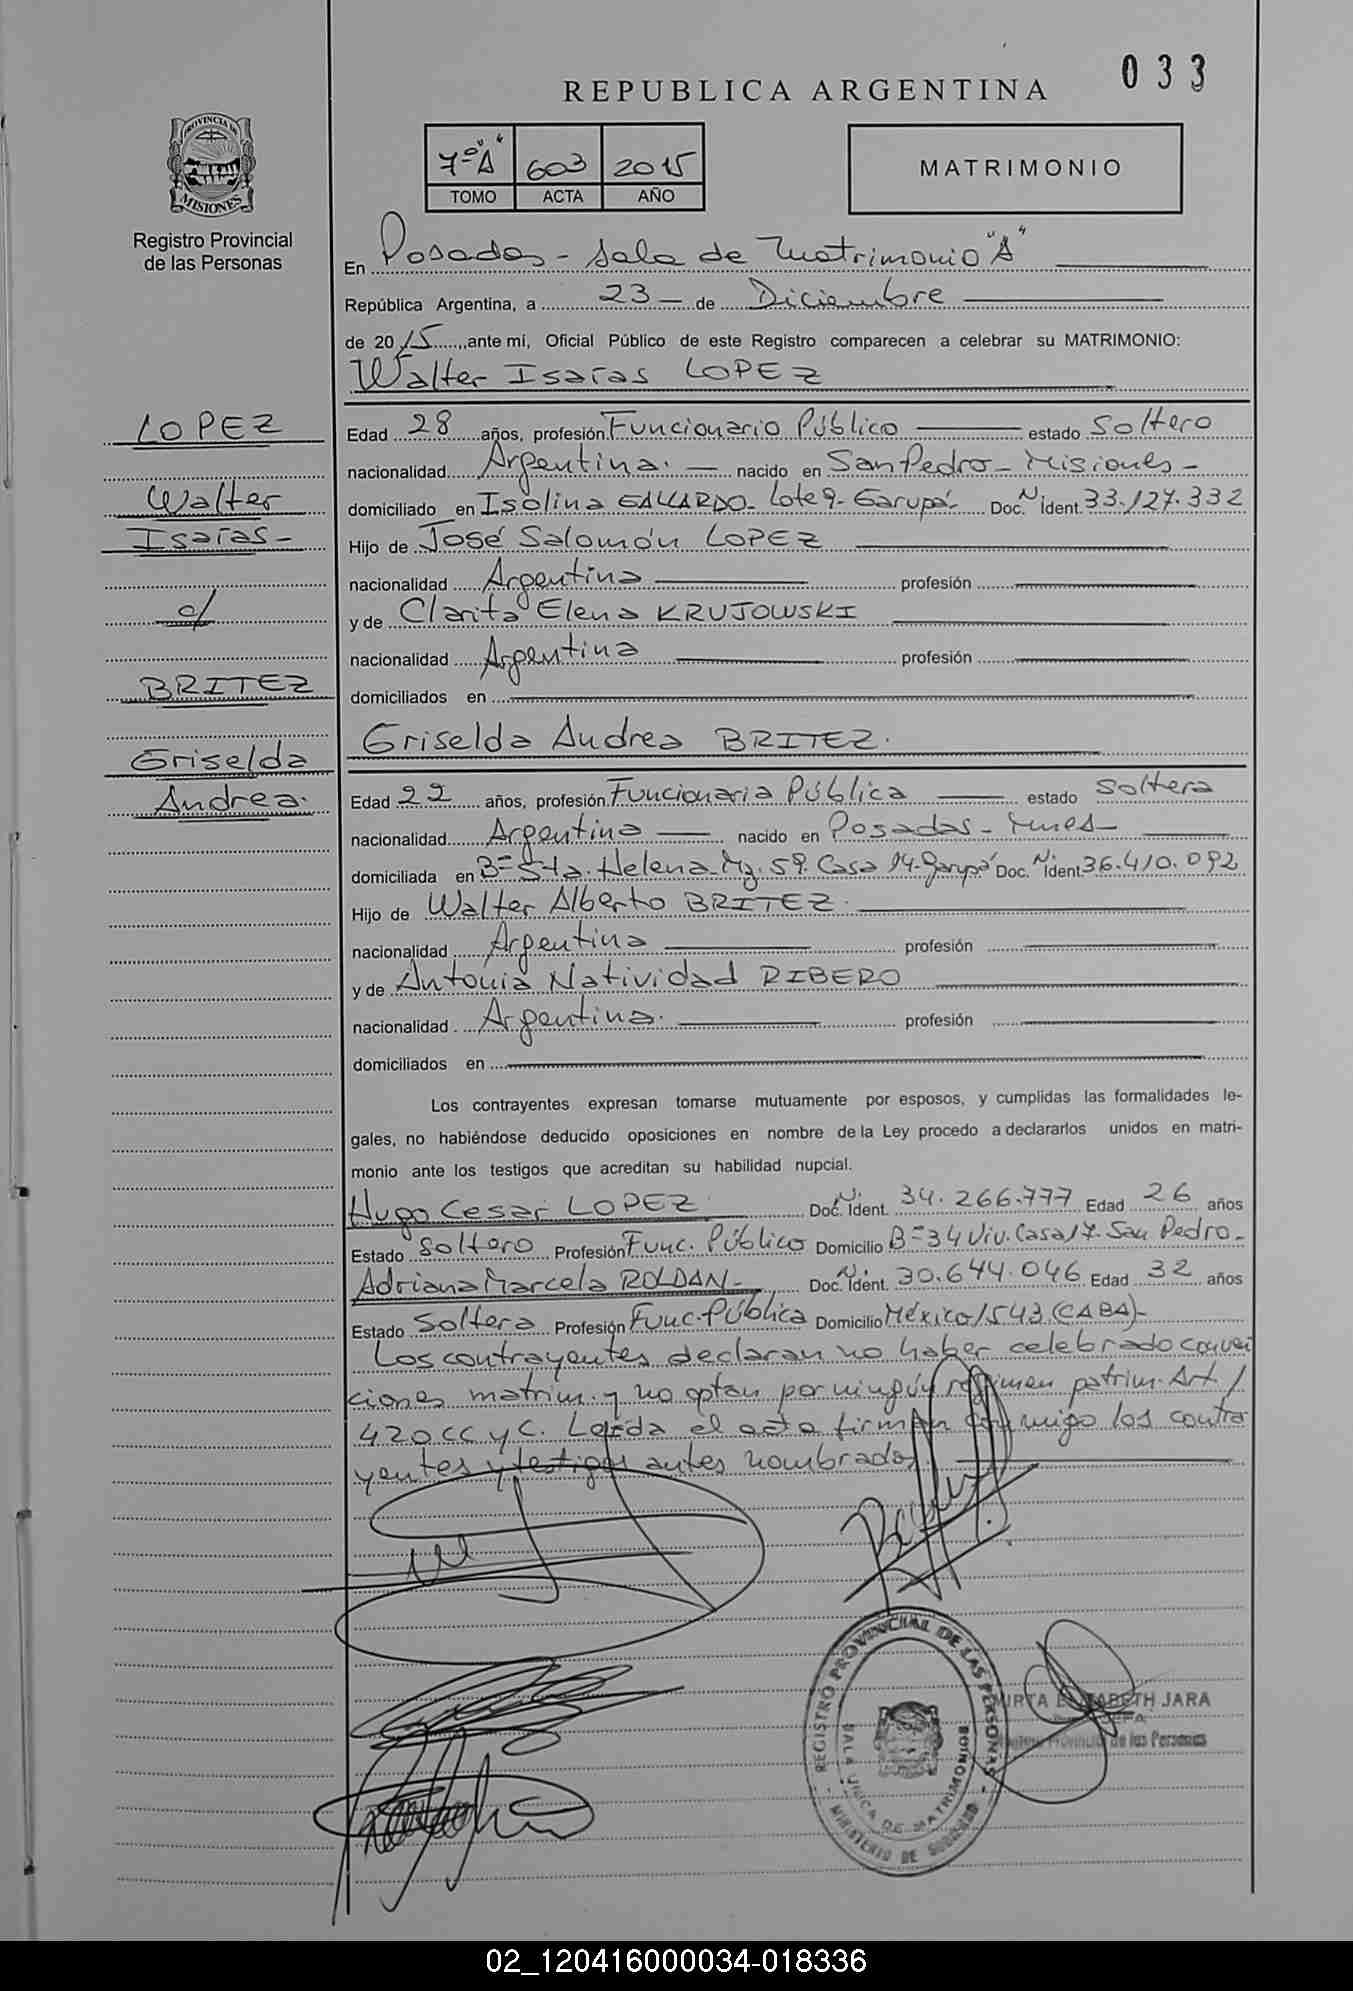 033
REPUBLICA ARGENTINA
PROVINCIA DE
MISIONES
Registro Provincial
de las Personas
7º "A" 603 2015
TOMO ACTA AÑO
MATRIMONIO
En Posadas - Sala de Matrimonio "A"
República Argentina, a 23 - de Diciembre
de 2015, ante mí, Oficial Público de este Registro comparecen a celebrar su MATRIMONIO:
Walter Isaras LOPEZ
LOPEZ
Walter
Isaras-
c/
BRITEZ
Griselda
Andrea.
Edad 28 años, profesión Funcionario Público estado Soltero
nacionalidad Argentina. - nacido en San Pedro - Misiones -
domiciliado en Isolina GALLARDO - Lote 9 - Garupá - Doc. Nº Ident. 33.127.332
Hijo de José Salomón LOPEZ
nacionalidad Argentina profesión
y de Clarita Elena KRUJOWSKI
nacionalidad Argentina profesión
domiciliados en
Griselda Andrea BRITEZ.
Edad 22 años, profesión Funcionaria Pública estado Soltera
nacionalidad Argentina nacido en Posadas - Mnes -
domiciliada en Bº Sta. Helena - Mz. 59. Casa 14 - Garupá Doc. Nº Ident. 36.410.092
Hijo de Walter Alberto BRITEZ.
nacionalidad Argentina profesión
y de Antonia Natividad RIBERO
nacionalidad Argentina. profesión
domiciliados en
Los contrayentes expresan tomarse mutuamente por esposos, y cumplidas las formalidades le-
gales, no habiéndose deducido oposiciones en nombre de la Ley procedo a declararlos unidos en matri-
monio ante los testigos que acreditan su habilidad nupcial.
Hugo Cesar LOPEZ. Doc. Nº Ident. 34.266.777 Edad 26 años
Estado Soltero Profesión Func. Público Domicilio Bº 34 Viv. Casa 17. San Pedro -
Adriana Marcela ROLDAN - Doc. Nº Ident. 30.644.046 Edad 32 años
Estado Soltera Profesión Func. Pública Domicilio México 1543 (CABA) -
Los contrayentes declaran no haber celebrado conven
ciones matrim. y no optan por ningún régimen patrim. Art. 1
420 CC y C. Leída el acta firman conmigo los contra
yentes y testigos antes nombrados.
REGISTRO PROVINCIAL DE LAS PERSONAS
SALA UNICA DE MATRIMONIO
MINISTERIO DE GOBIERNO
MIRTA ELIZABETH JARA
JEFA
Registro Provincial de las Personas
02_120416000034-018336